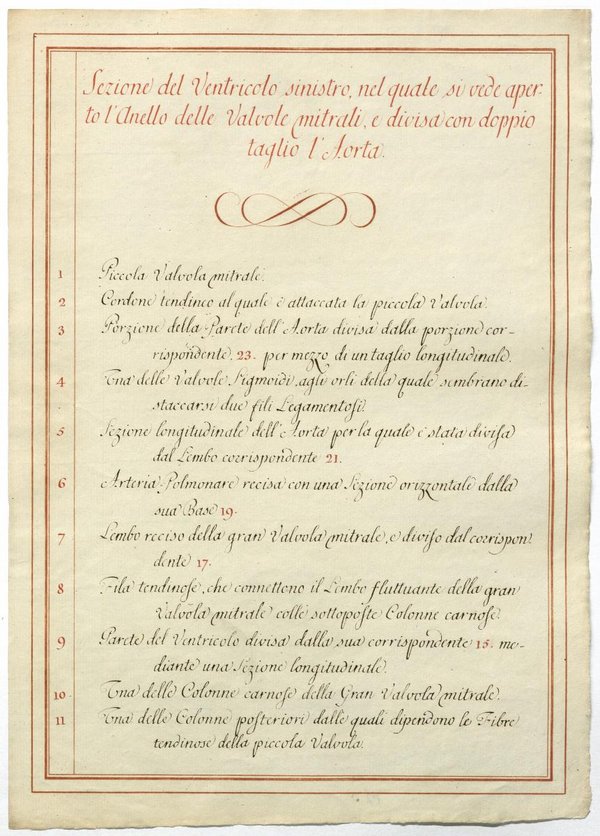 Sezione del Ventricolo sinistro, nel quale si vede aper-
to l'Anello delle Valvole mitrali, e divisa con doppio
taglio l'Aorta.
1 Piccola Valvola mitrale.
2 Cordone tendineo al quale è attaccata la piccola Valvola.
3 Porzione della Parete dell'Aorta divisa dalla porzione cor-
rispondente 23. per mezzo di un taglio longitudinale.
4 Una delle Valvole Sigmoidi, agli orli della quale sembrano di-
staccarsi due fili Legamentosi.
5 Sezione longitudinale dell'Aorta per la quale è stata divisa
dal Lembo corrispondente 21.
6 Arteria Polmonare recisa con una Sezione orizzontale dalla
sua Base 19.
7 Lembo reciso della gran Valvola mitrale, e diviso dal corrispon
dente 17.
8 Fila tendinose, che connettono il Lembo fluttuante della gran
Valvola mitrale colle sottoposte Colonne carnose.
9 Parete del Ventricolo divisa dalla sua corrispondente 15. me-
diante una Sezione longitudinale.
10 Una delle Colonne carnose della Gran Valvola mitrale.
11 Una delle Colonne posteriori dalle quali dipendono le Fibre
tendinose della piccola Valvola.